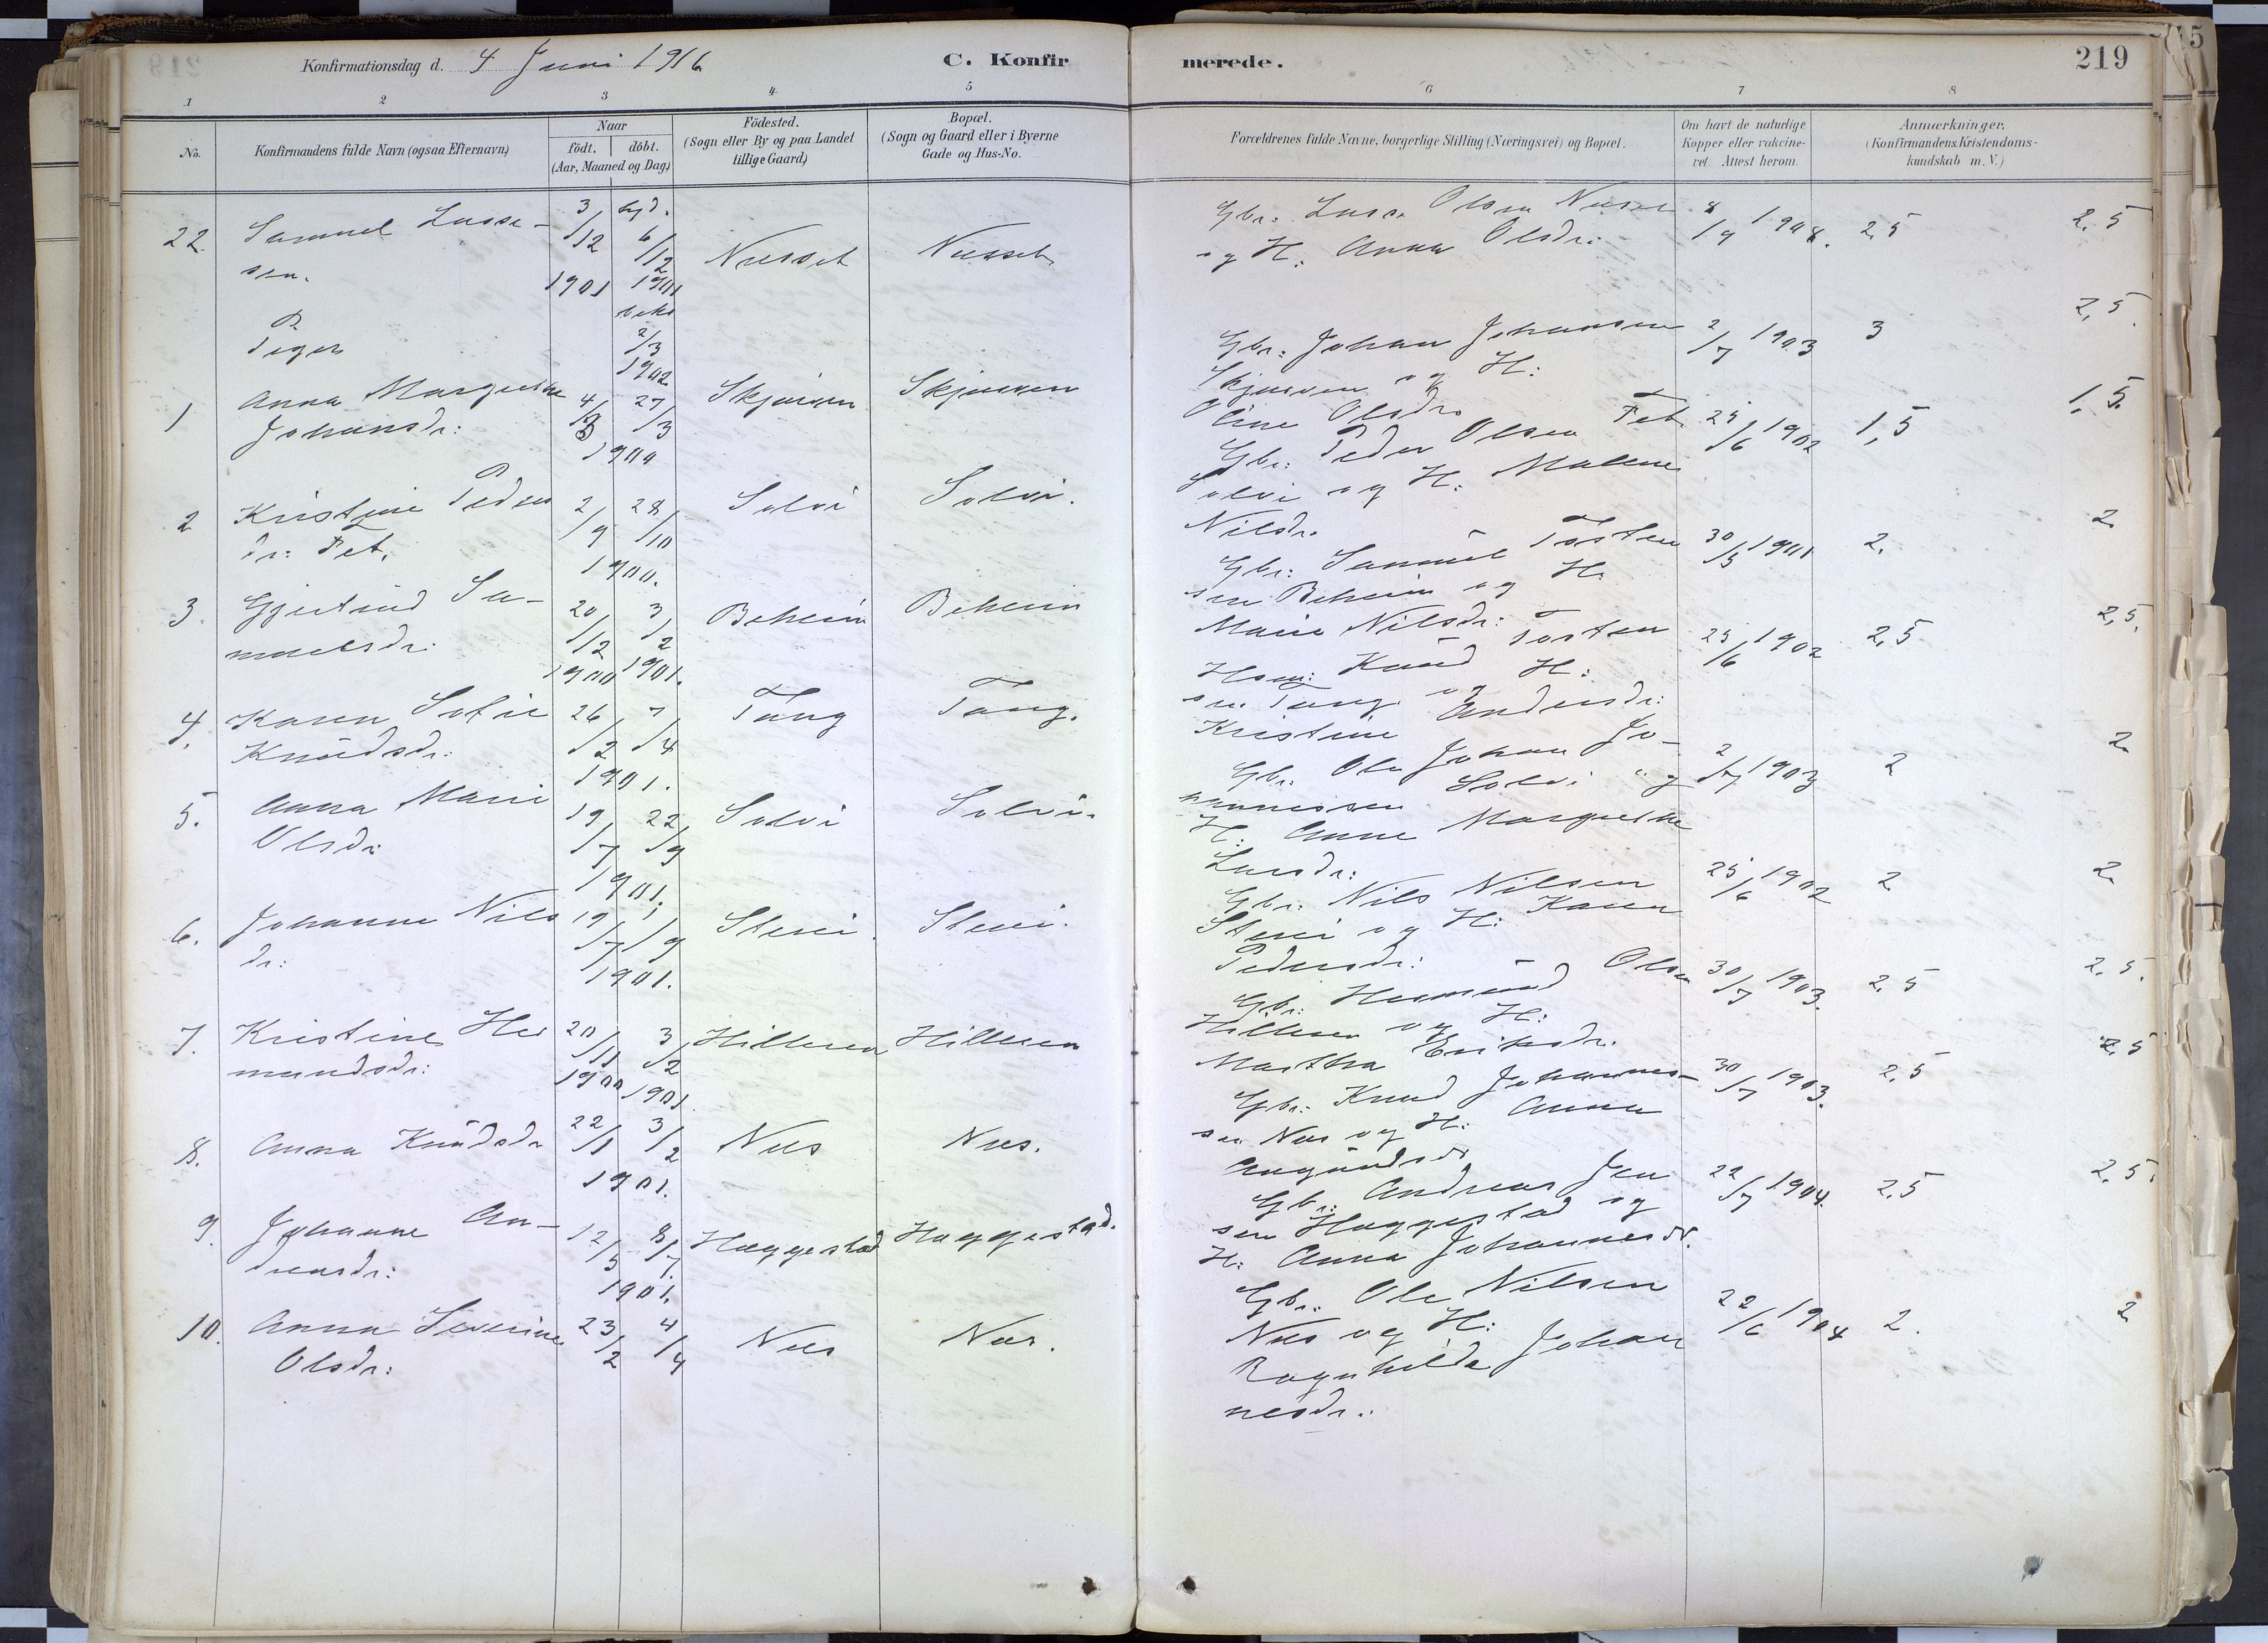 Konfirmationsdag d. 4 Juni 1916
C. Konfir
merede.
219
1 2 3 4 5 6 7 8
No.
Konfirmandens fulde Navn (ogsaa Efternavn)
Naar
födt. döbt.
(Aar, Maaned og Dag)
Födested.
(Sogn eller By og paa Landet
tillige Gaard)
Bopæl.
(Sogn og Gaard eller i Byerne
Gade og Hus-No.
Forældrenes fulde Navne, borgerlige Stilling (Næringsvei) og Bopæl.
Om havt de naturlige
Kopper eller vakcine-
ret. Attest herom.
Anmærkninger.
(Konfirmandens Kristendoms-
kundskab m. V.)
22. Samuel Lasse- 3/12 hjd. 6/12 Nesset Nesset
sen. 1901 1901
beks
2/3
1902
Gbr: Lasse Olsen Nesset 8/9 1908. 2,5 2,5
og H: Anna Olsdr:
Piger
1 Anna Margrethe 4/3 27/3 Skjerven Skjerven
Johansdr: 1900
Gbr: Johan Johansen 2/7 1903 3 2,5
Skjerven og H:
Oline Olsdr.
2 Kristine Peders 2/9 28/10 Solvi Solvi.
dr: Fet. 1900.
Gbr: Peder Olsen Fet 25/6 1902 1,5 1,5
Solvi og H: Malene
Nilsdr.
3. Gjertrud Sa- 20/12 3/2 Beheim Beheim
muelsdr: 1900 1901.
Gbr: Samuel Tosten 30/5 1901 2. 2
sen Beheim og H:
Marie Nilsdr:
4. Karen Sofie 26/2 7/4 Tang Tang.
Knudsdr: 1901.
Hsm: Knud Tosten 25/6 1902 2,5 2,5.
sen Tang og H:
Kristine Andersdr:
5. Anna Marie 19/7 22/9 Solvi Solvi.
Olsdr: 1901.
Gbr: Ole Johan Jo- 2/7 1903 2 2
hannessen Solvi og
H: Anne Margrethe
Larsdr:
6. Johanne Nils 19/7 1/9 Steni. Steni.
dr: 1901.
Gbr: Nils Nilsen 25/6 1902 2 2
Steni og H: Karen
Pedersdr:
7. Kristine Her 20/11 3/2 Hilleren Hilleren
mundsdr: 1900 1901
Gbr: Hermund Olsen 30/7 1903. 2,5 2,5.
Hilleren og H:
Martha Eriksdr.
8. Anna Knudsdr 22/1 3/2 Nees Nees.
1901.
Gbr: Knud Johannes- 30/7 1903. 2,5 2,5
sen Nees og H: Anna
Augundsdr
9. Johanne An- 12/5 8/7 Hæggestad Hæggestad.
dreasdr: 1901.
Gbr: Andreas Jen 22/7 1904. 2,5 2,5.
sen Hæggestad og
H: Anna Johannesdr.
10. Anna Severine 23/2 4/4 Nees Nees.
Olsdr:
Gbr: Ole Nilsen 22/6 1904 2. 2
Nees og H:
Ragnhilda Johan
nesdr.